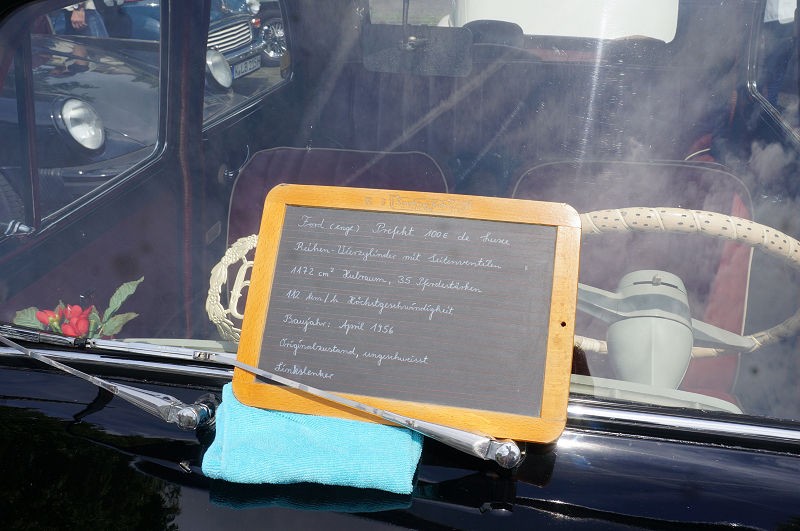 Ford (engl) Prefekt 100E de Luxe
Reihen-Vierzylinder mit Seitenventilen
1172 cm³ Hubraum, 35 Pferdestärken
112 km/h Höchstgeschwindigkeit
Baujahr: April 1956
Originalzustand, ungeschweisst
Linkslenker